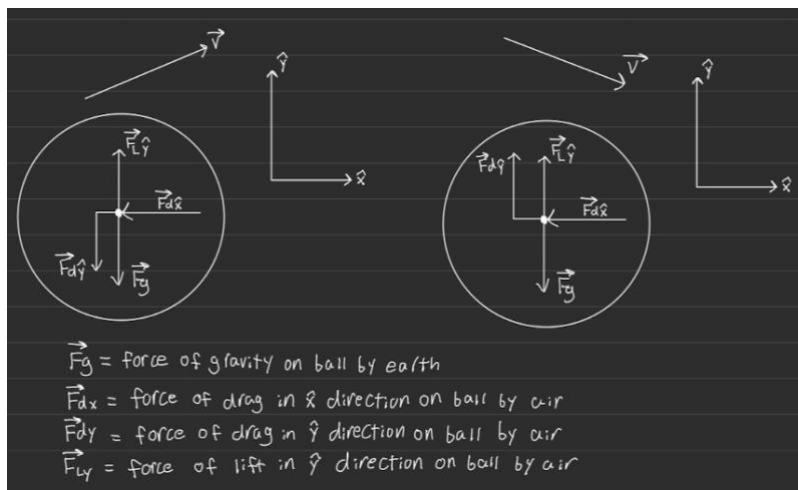 V⃗
ŷ
x̂
F⃗Lŷ
F⃗dx̂
F⃗dŷ
F⃗g
V⃗
ŷ
x̂
F⃗dŷ
F⃗Lŷ
F⃗dx̂
F⃗g
F⃗g = force of gravity on ball by earth
F⃗dx = force of drag in x̂ direction on ball by air
F⃗dy = force of drag in ŷ direction on ball by air
F⃗Ly = force of lift in ŷ direction on ball by air